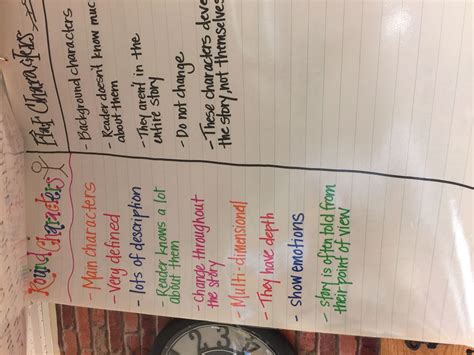 Round Characters
- Main characters
- Very defined
- lots of description
- Reader knows a lot
about them
- change throughout
the story
- Multi-dimensional
- They have depth
- show emotions
- story is often told from
their point of view
Flat Characters
- Background characters
- Reader doesn't know muc
about them
- They aren't in the
entire story
- Do not change
- These characters deve
the story, not themselves